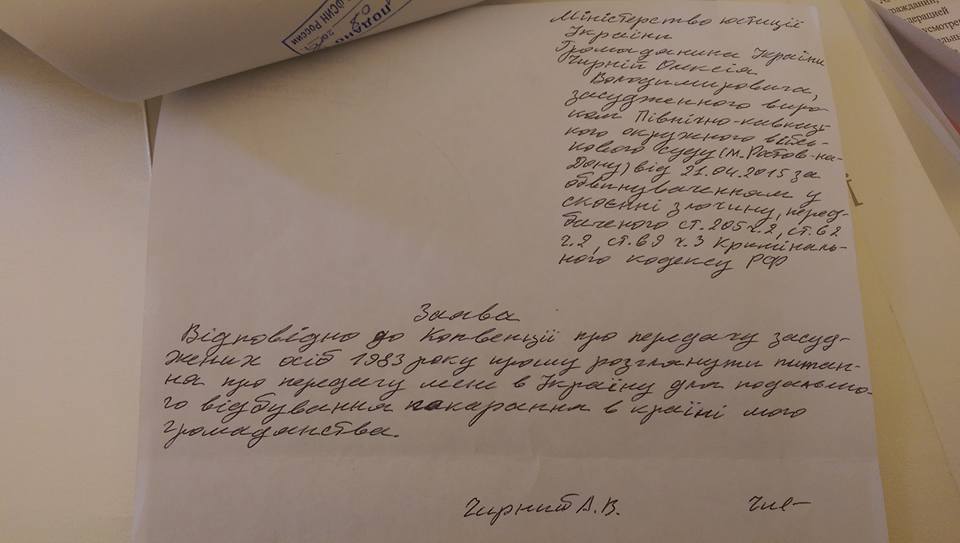 ФСИН России
Міністерство юстиції
України
Громадянина України
Чирній Олексія
Володимировича,
засудженного виро-
ком Північно-кавказь-
кого окружного війсь-
кового суду (м. Ростов-на-
Дону) від 21.04.2015 за
обвинуваченням у
скоєнні злочину, перед-
баченого ст. 205 ч. 2, ст. 62
ч. 2, ст. 69 ч. 3 Криміналь-
ного кодексу РФ
Заява
Відповідно до Конвенції про передачу засуд-
жених осіб 1983 року прошу розглянути питан-
ня про передачу мене в Україну для подальшо-
го відбування покарання в країні мого
громадянства.
Чирний А.В.